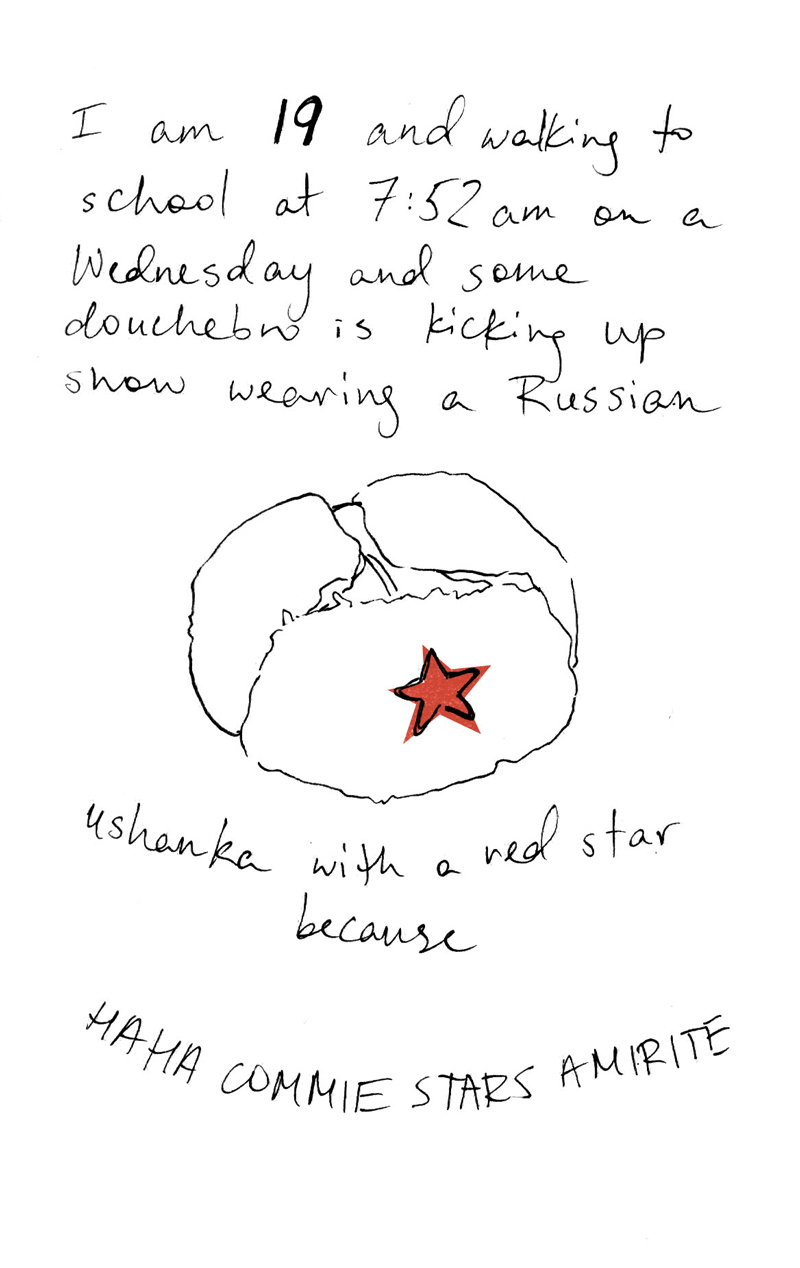 I am 19 and walking to
school at 7:52 am on a
Wednesday and some
douchebro is kicking up
snow wearing a Russian
ushanka with a red star
because
HAHA COMMIE STARS AMIRITE